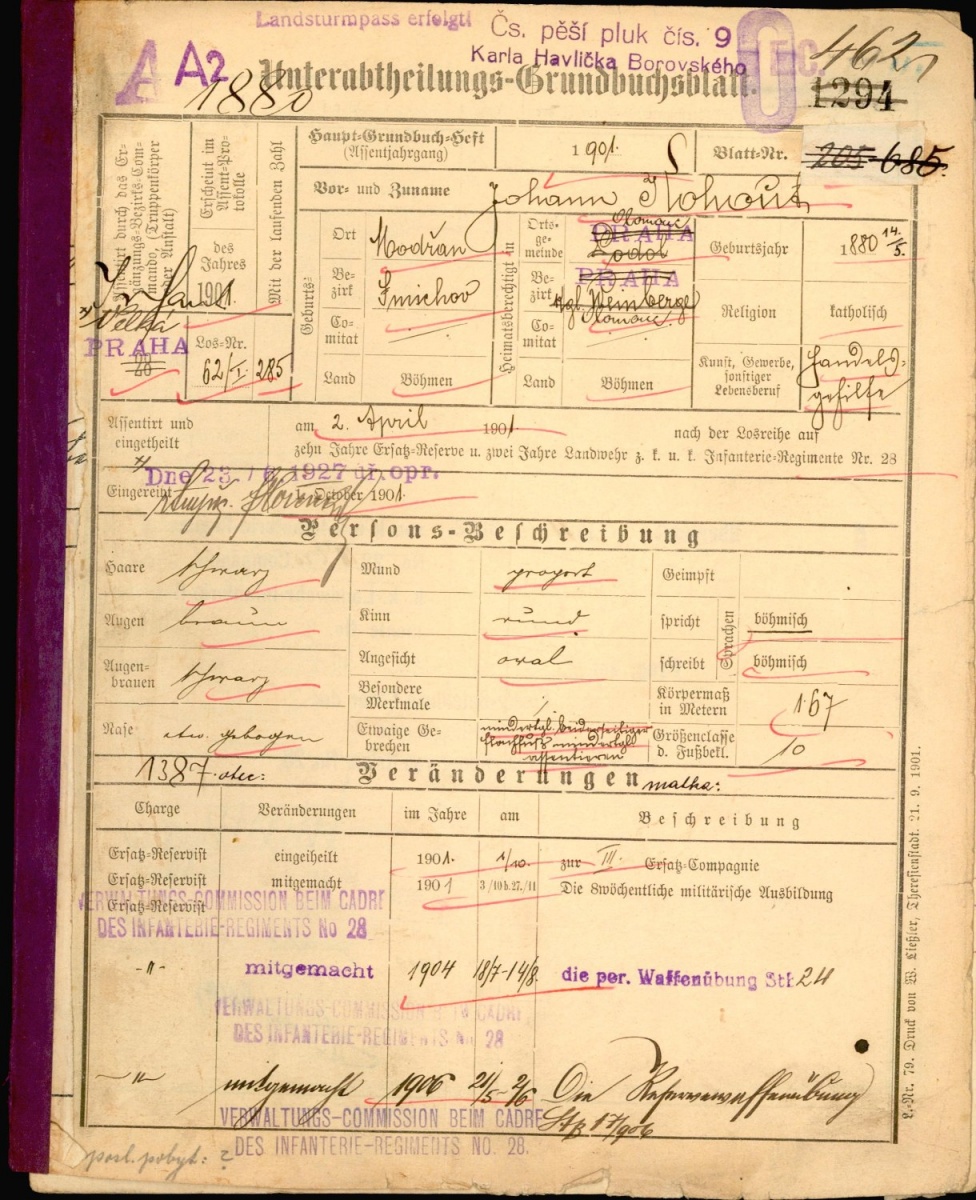 Landsturmpass erfolgt!
Čs. pěší pluk čís. 9
Karla Havlíčka Borovského
A A2
462
1880
Unterabtheilungs-Grundbuchsblatt.
1294
Haupt-Grundbuch-Heft
(Assentjahrgang)
1901.
Blatt-Nr.
205 685.
Vor- und Zuname
Johann Kohout
Assentirt durch das Ergänzungs-Bezirks-Commando, (Truppenkörper oder Anstalt)
Velká
PRAHA
28
Erscheint im Assent-Protokolle
des Jahres
1901.
Los-Nr.
62/I.
Mit der laufenden Zahl
285
Geburts-
Ort
Modřan
Bezirk
Smichov
Comitat
Land
Böhmen
Heimatsberechtigt in
Ortsgemeinde
Olomouc
PRAHA
Podol
Bezirk
PRAHA
kgl. Weinberge
Olomouc
Comitat
Land
Böhmen
Geburtsjahr
1880 14./5.
Religion
katholisch
Kunst, Gewerbe, sonstiger Lebensberuf
Handels-
gehilfe
Assentirt und eingetheilt
am 2. April 1901. nach der Losreihe auf
zehn Jahre Ersatz-Reserve u. zwei Jahre Landwehr z. k. u. k. Infanterie-Regimente Nr. 28
Dne 23 1927 df. opr.
Eingereiht
1. October 1901.
Persons-Beschreibung
Haare
schwarz
Mund
proport
Geimpft
Augen
braun
Kinn
rund
Sprachen
spricht
böhmisch
Augenbrauen
schwarz
Angesicht
oval
schreibt
böhmisch
Besondere Merkmale
Körpermaß in Metern
1·67
Nase
etw. gebogen
Etwaige Gebrechen
mindertgl. beiderseitiger
Plachfuss mindertgl.
assentieren
Größenclasse d. Fußbekl.
10
1387. otec:
Veränderungen
matka:
Charge
Veränderungen
im Jahre
am
Beschreibung
Ersatz-Reservist
eingetheilt
1901.
1/10.
zur III. Ersatz-Compagnie
Ersatz-Reservist
mitgemacht
1901
3/10 b. 27./11
Die 8wöchentliche militärische Ausbildung
Ersatz-Reservist
VERWALTUNGS-COMMISSION BEIM CADRE
DES INFANTERIE-REGIMENTS No 28
-"-
mitgemacht
1904
18/7-14/8.
die per. Waffenübung Stk 24
VERWALTUNGS-COMMISSION BEIM CADRE
DES INFANTERIE-REGIMENTS No 28
-"-
mitgemacht
1906
21/5-2/6
Die Reservewaffenübung
Stk 17/906
VERWALTUNGS-COMMISSION BEIM CADRE
DES INFANTERIE-REGIMENTS No. 28.
posl. pobyt: ?
L.-Nr. 79. Druck von W. Ließler, Theresienstadt. 21. 9. 1901.